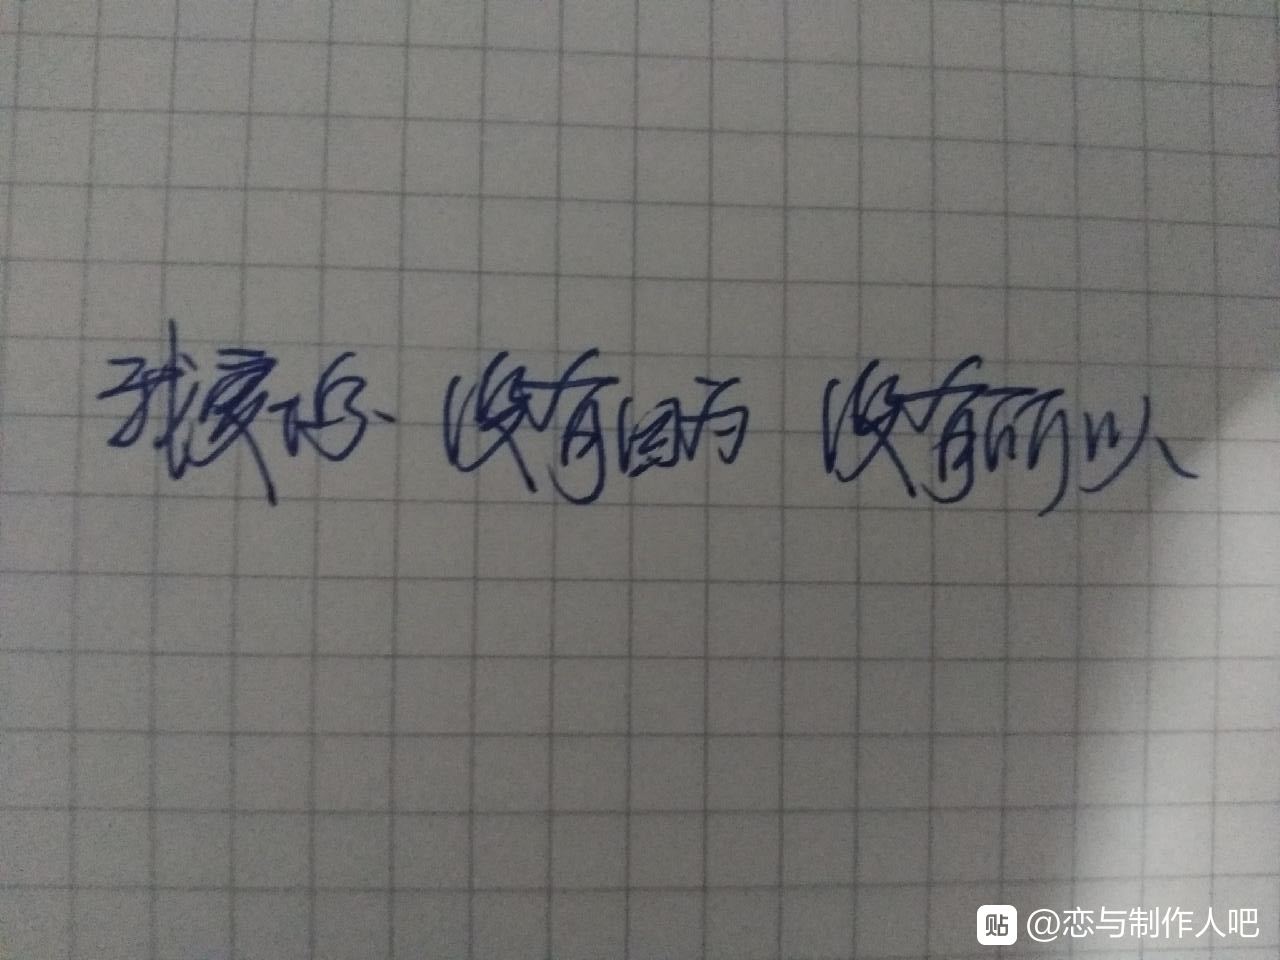 我爱你 没有因为 没有所以
贴 @恋与制作人吧